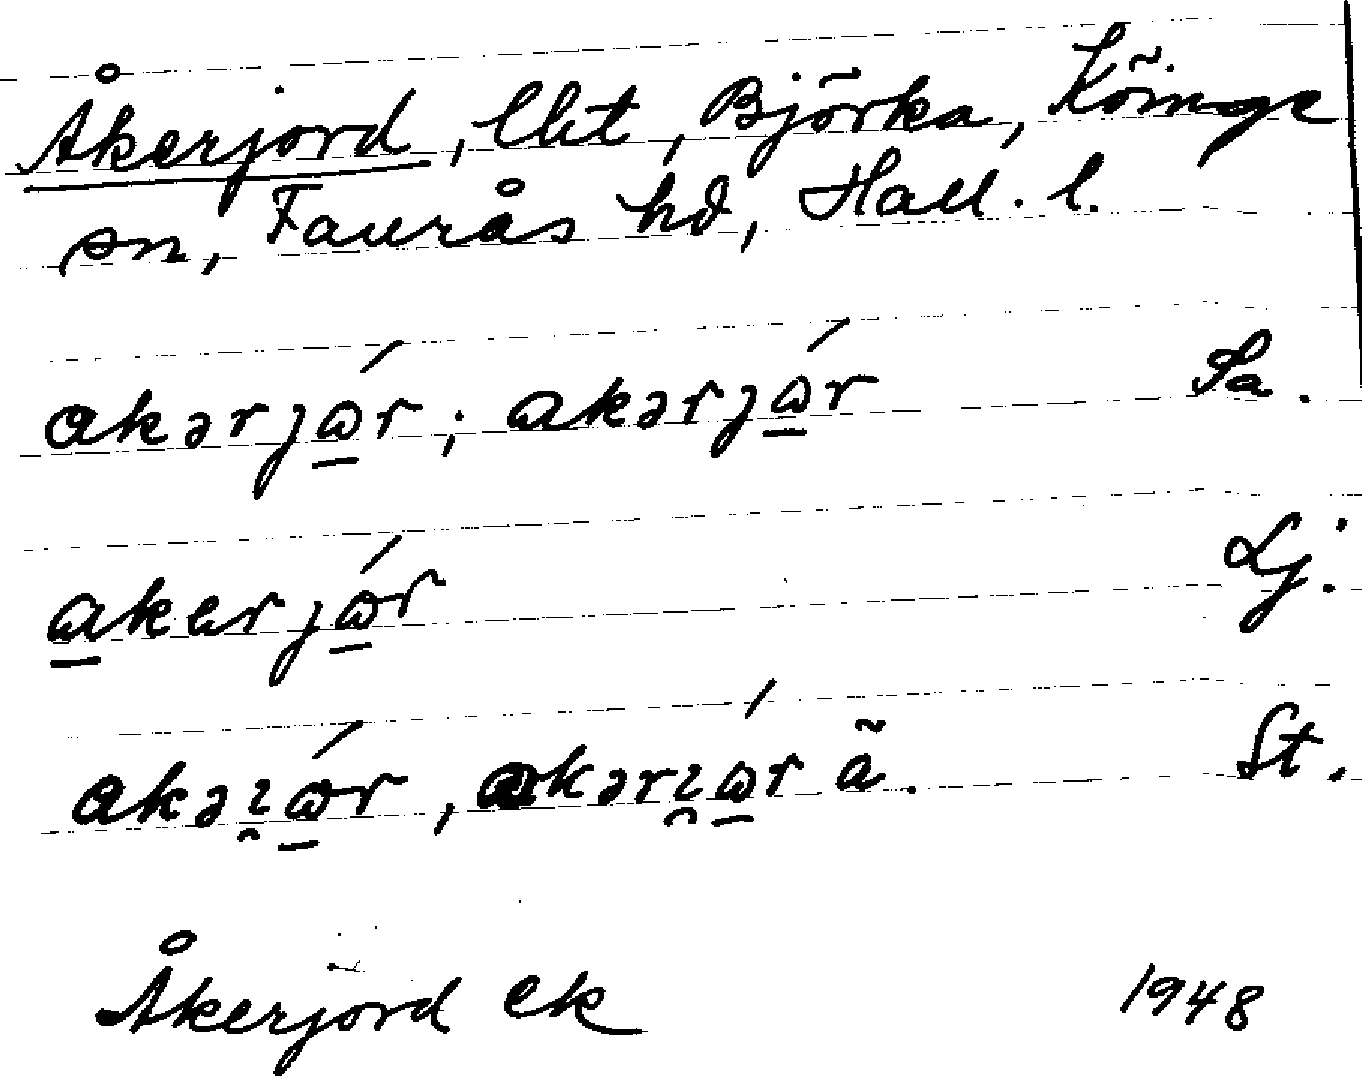 Åkerjord, lht, Björka, Köinge
sn, Faurås hd, Hall. l.
akərjώ̱r; akərjώ̱r Sa.
a̱kerjώ̱r Lj.
akəı̯ώ̱r, akərı̯ώ̱r ã. St.
Åkerjord ek 1948